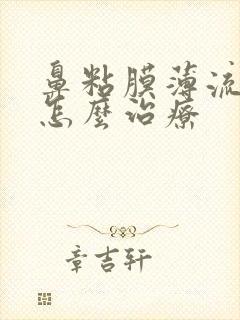 鼻粘膜薄流
怎麼治療
章吉轩